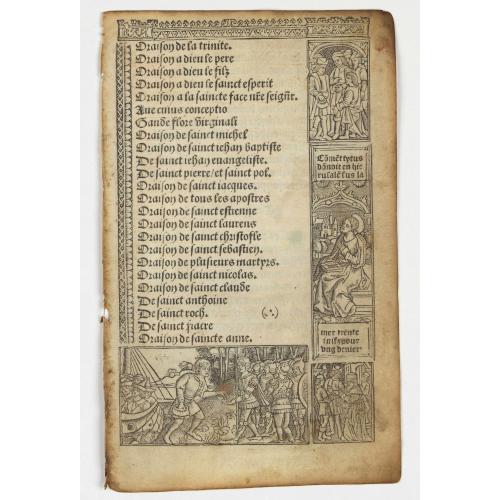 Oraison de la trinite.
Oraison a dieu le pere
Oraison a dieu le filz
Oraison a dieu le sainct esperit
Oraison a la saincte face nr̃e seignr̃.
Aue cuius conceptio
Gaude flore virginali
Oraison de sainct michel
Oraison de sainct iehan baptiste
De sainct iehan euangeliste.
De sainct pierre/et sainct pol.
Oraison de sainct iacques.
Oraison de tous les apostres
Oraison de sainct estienne
Oraison de sainct laurens
Oraison de sainct christofle
Oraison de sainct sebastien.
Oraison de plusieurs martyrs.
Oraison de sainct nicolas.
Oraison de sainct claude
De sainct anthoine
De sainct roch.
De sainct fiacre
Oraison de saincte anne.
Cõmẽt tytus
vẽdoit en hie
rusalẽ sus la
mer trente
iuifz pour
vng denier